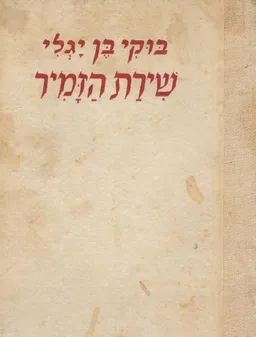 בּוּקִי בֶּן יָגְלִי
שִׁירַת הַזָּמִיר